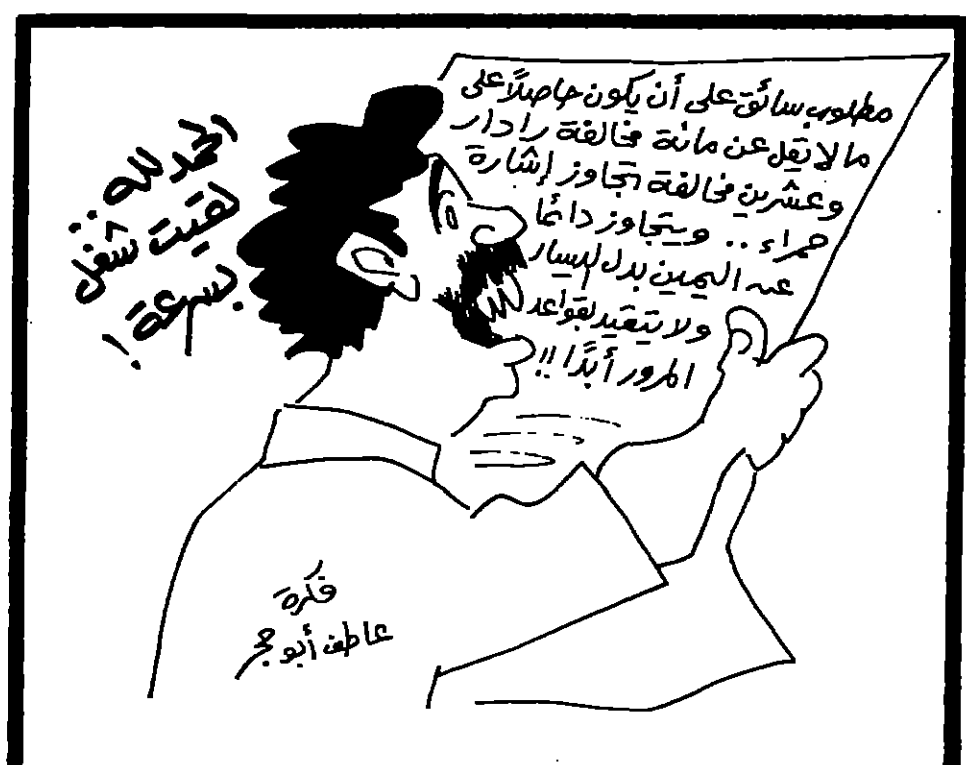 مطلوب سائق على أن يكون حاصلاً على
ما لا يقل عن مائة مخالفة رادار
وعشرين مخالفة تجاوز إشارة
حمراء .. ويتجاوز دائمًا
عن اليمين بدل اليسار
ولا يتقيد بقواعد
المرور أبدًا !!
الحمد لله ..
لقيت شغل
بسرعة !
فكرة
عاطف أبو حجر